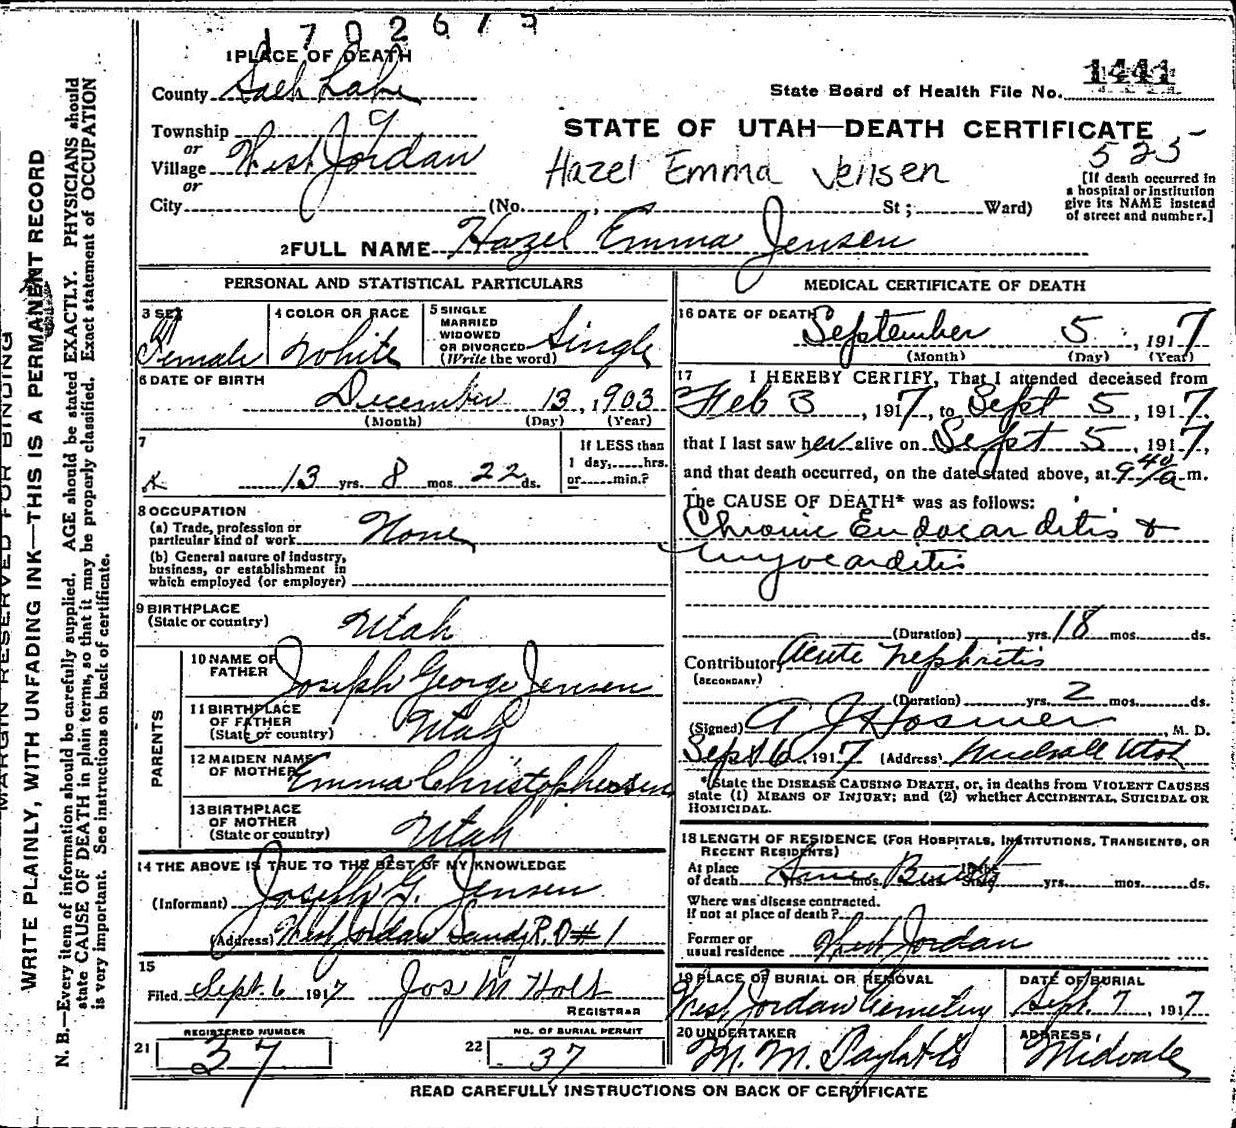 1702675
1 PLACE OF DEATH
County Salt Lake
State Board of Health File No. 1441
Township
or
Village West Jordan
or
City (No. , St ; Ward)
STATE OF UTAH—DEATH CERTIFICATE
525
Hazel Emma Jensen
[If death occurred in
a hospital or institution
give its NAME instead
of street and number.]
2 FULL NAME Hazel Emma Jensen
PERSONAL AND STATISTICAL PARTICULARS
3 SEX
Female
4 COLOR OR RACE
White
5 SINGLE
MARRIED
WIDOWED
OR DIVORCED
(Write the word)
Single
6 DATE OF BIRTH
December 13, 1903
(Month) (Day) (Year)
7
13 yrs. 8 mos. 22 ds.
If LESS than
1 day, hrs.
or min.?
8 OCCUPATION
(a) Trade, profession or
particular kind of work None
(b) General nature of industry,
business, or establishment in
which employed (or employer)
9 BIRTHPLACE
(State or country) Utah
PARENTS
10 NAME OF
FATHER Joseph George Jensen
11 BIRTHPLACE
OF FATHER
(State or country) Utah
12 MAIDEN NAME
OF MOTHER Emma Christophersen
13 BIRTHPLACE
OF MOTHER
(State or country) Utah
14 THE ABOVE IS TRUE TO THE BEST OF MY KNOWLEDGE
(Informant) Joseph G. Jensen
(Address) West Jordan Sandy R. D # 1
15
Filed Sept. 6 1917 Jos M Holt
REGISTRAR
REGISTERED NUMBER
21 37
NO. OF BURIAL PERMIT
22 37
MEDICAL CERTIFICATE OF DEATH
16 DATE OF DEATH
September 5, 1917
(Month) (Day) (Year)
17 I HEREBY CERTIFY, That I attended deceased from
Feb 3, 1917, to Sept 5, 1917,
that I last saw her alive on Sept 5, 1917,
and that death occurred, on the date stated above, at 9 40 a m.
The CAUSE OF DEATH* was as follows:
Chronic Endocarditis &
myocarditis
(Duration) yrs. 18 mos. ds.
Contributory Acute Nephritis
(SECONDARY)
(Duration) yrs. 2 mos. ds.
(Signed) A J Hosmer, M. D.
Sept 6 1917 (Address) Midvale Utah
*State the DISEASE CAUSING DEATH, or, in deaths from VIOLENT CAUSES
state (1) MEANS OF INJURY; and (2) whether ACCIDENTAL, SUICIDAL OR
HOMICIDAL.
18 LENGTH OF RESIDENCE (FOR HOSPITALS, INSTITUTIONS, TRANSIENTS, OR
RECENT RESIDENTS)
At place
of death yrs. mos. ds. State yrs. mos. ds.
Where was disease contracted.
If not at place of death?
Former or
usual residence West Jordan
19 PLACE OF BURIAL OR REMOVAL
West Jordan Cemetery
DATE OF BURIAL
Sept. 7, 1917
20 UNDERTAKER
M. M.
ADDRESS,
Midvale
READ CAREFULLY INSTRUCTIONS ON BACK OF CERTIFICATE
MARGIN RESERVED FOR BINDING
WRITE PLAINLY, WITH UNFADING INK—THIS IS A PERMANENT RECORD
N. B.—Every item of information should be carefully supplied. AGE should be stated EXACTLY. PHYSICIANS should
state CAUSE OF DEATH in plain terms, so that it may be properly classified. Exact statement of OCCUPATION
is very important. See instructions on back of certificate.